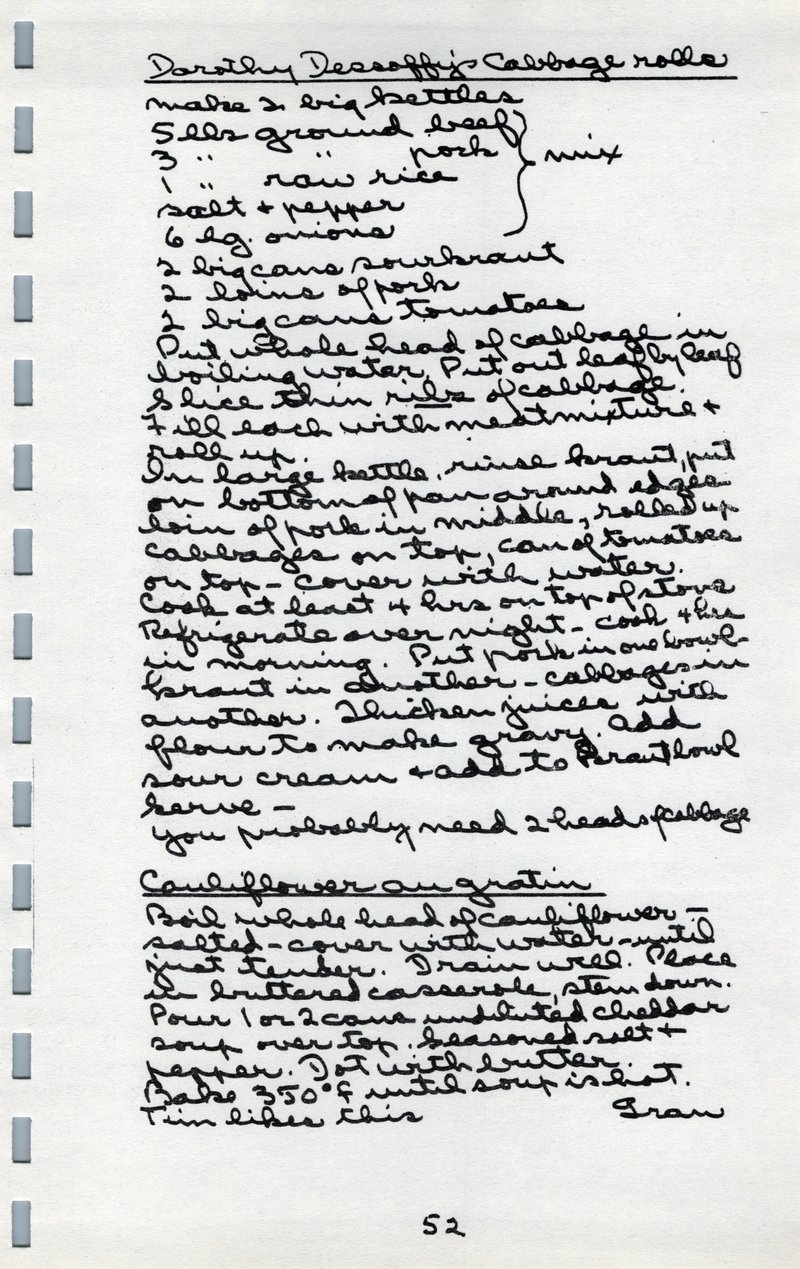 Dorothy Dessoffy's Cabbage rolls
make 2 big kettles
5 lbs ground beef
3 " " pork } mix
1 " raw rice
salt + pepper
6 lg. onions
2 big cans sourkraut
2 loins of pork
2 big cans tomatoes
Put whole head of cabbage in
boiling water. Put out leaf by leaf
Slice thin ribs of cabbage.
Fill each with meat mixture +
roll up.
In large kettle, rinse kraut, put
on bottom of pan around edges
loin of pork in middle, rolled up
cabbages on top, can of tomatoes
on top - cover with water.
Cook at least 4 hrs on top of stove
Refrigerate over night - cook 4 hrs
in morning. Put pork in one bowl -
kraut in another - cabbages in
another. Thicken juices with
flour to make gravy. Add
sour cream + add to kraut bowl
serve -
You probably need 2 heads of cabbage
Cauliflower au gratin
Boil whole head of cauliflower -
salted - cover with water - until
just tender. Drain well. Place
in buttered casserole, stem down.
Pour 1 or 2 cans undiluted cheddar
soup over top. Seasoned salt +
pepper. Dot with butter.
Bake 350° F until soup is hot.
Tim likes this Gran
52